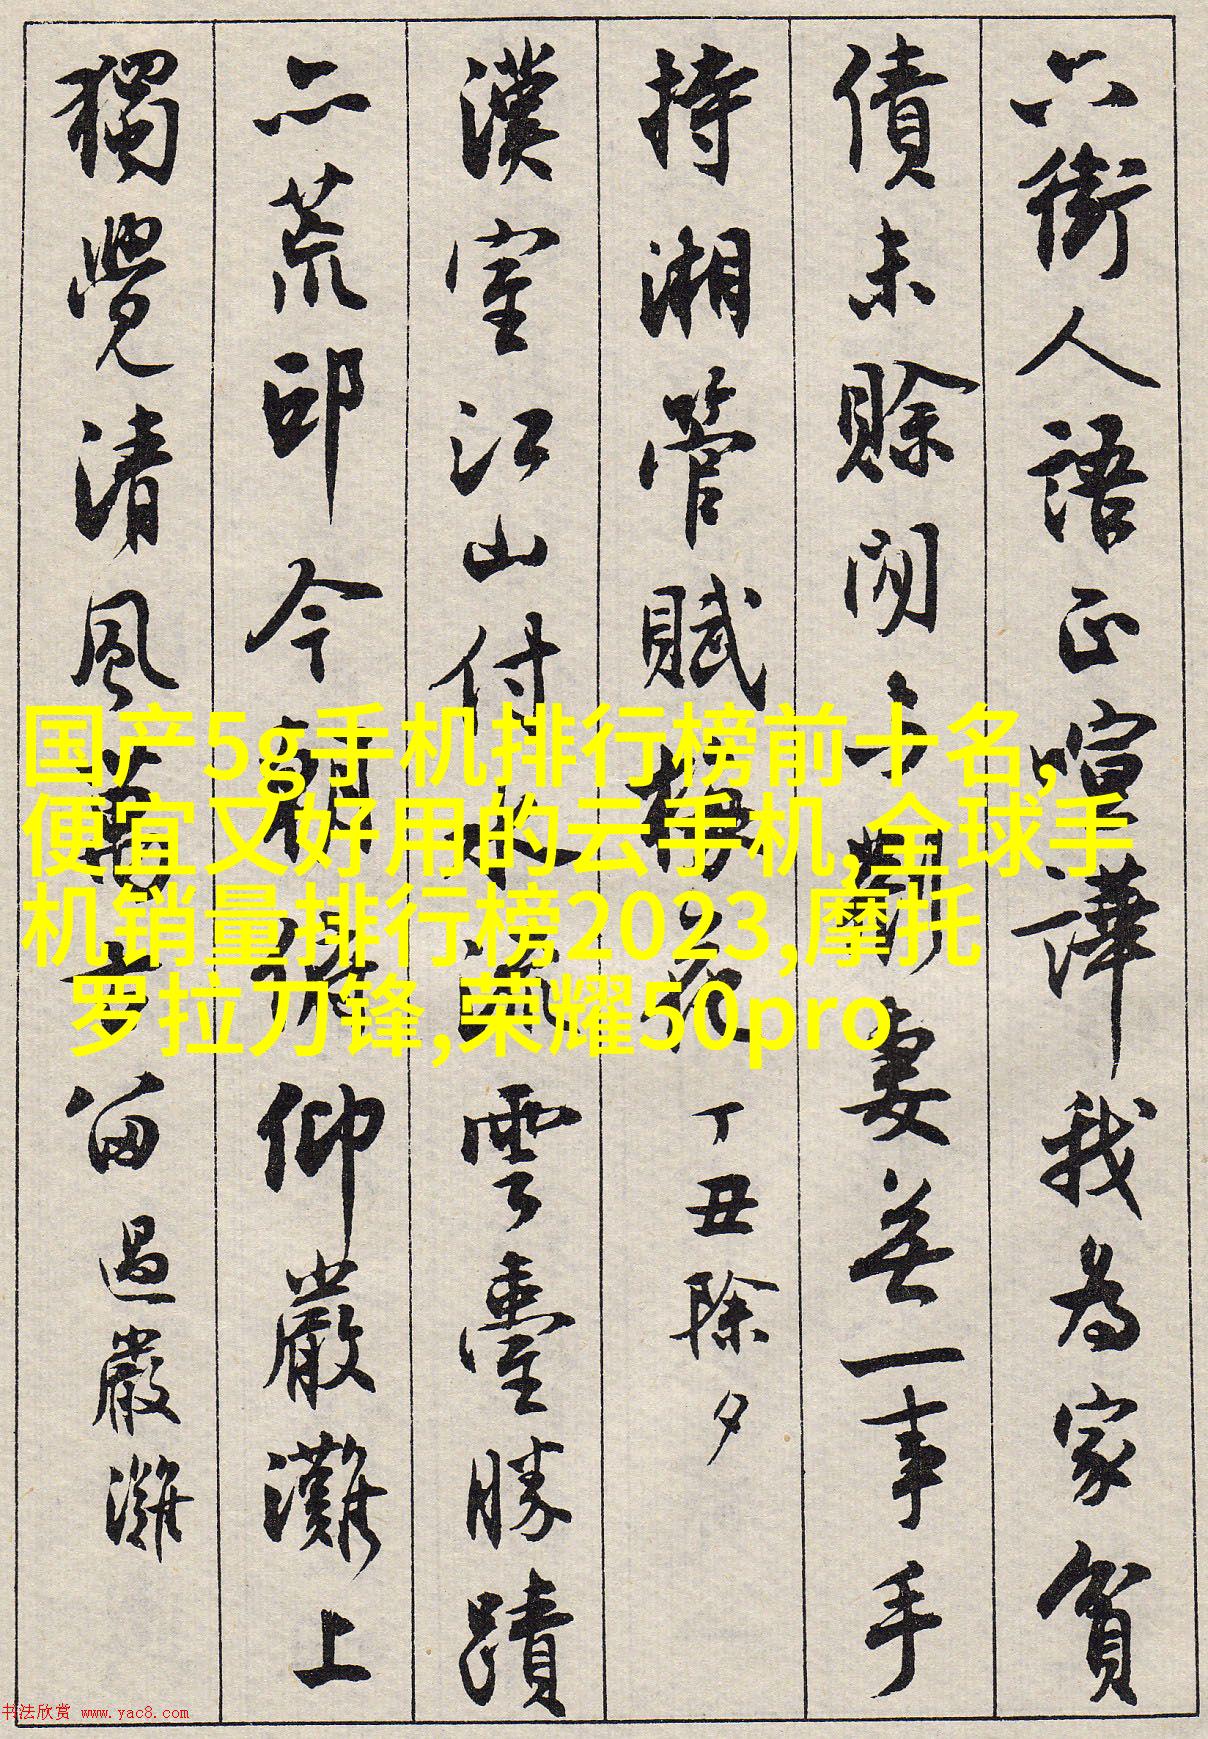 六街人語正喧譁我為家貧
債未賒閒與荊妻無一事手
持湘管賦梅花 丁丑除夕
漢室江山付水流雲臺勝蹟
亦荒邱今朝得仰嚴灘上
獨覺清風萬古留 過嚴灘
国产5g手机排行榜前十名,
便宜又好用的云手机,全球手
机销量排行榜2023,摩托
罗拉刀锋,荣耀50pro
书法欣赏 www.yac8.com